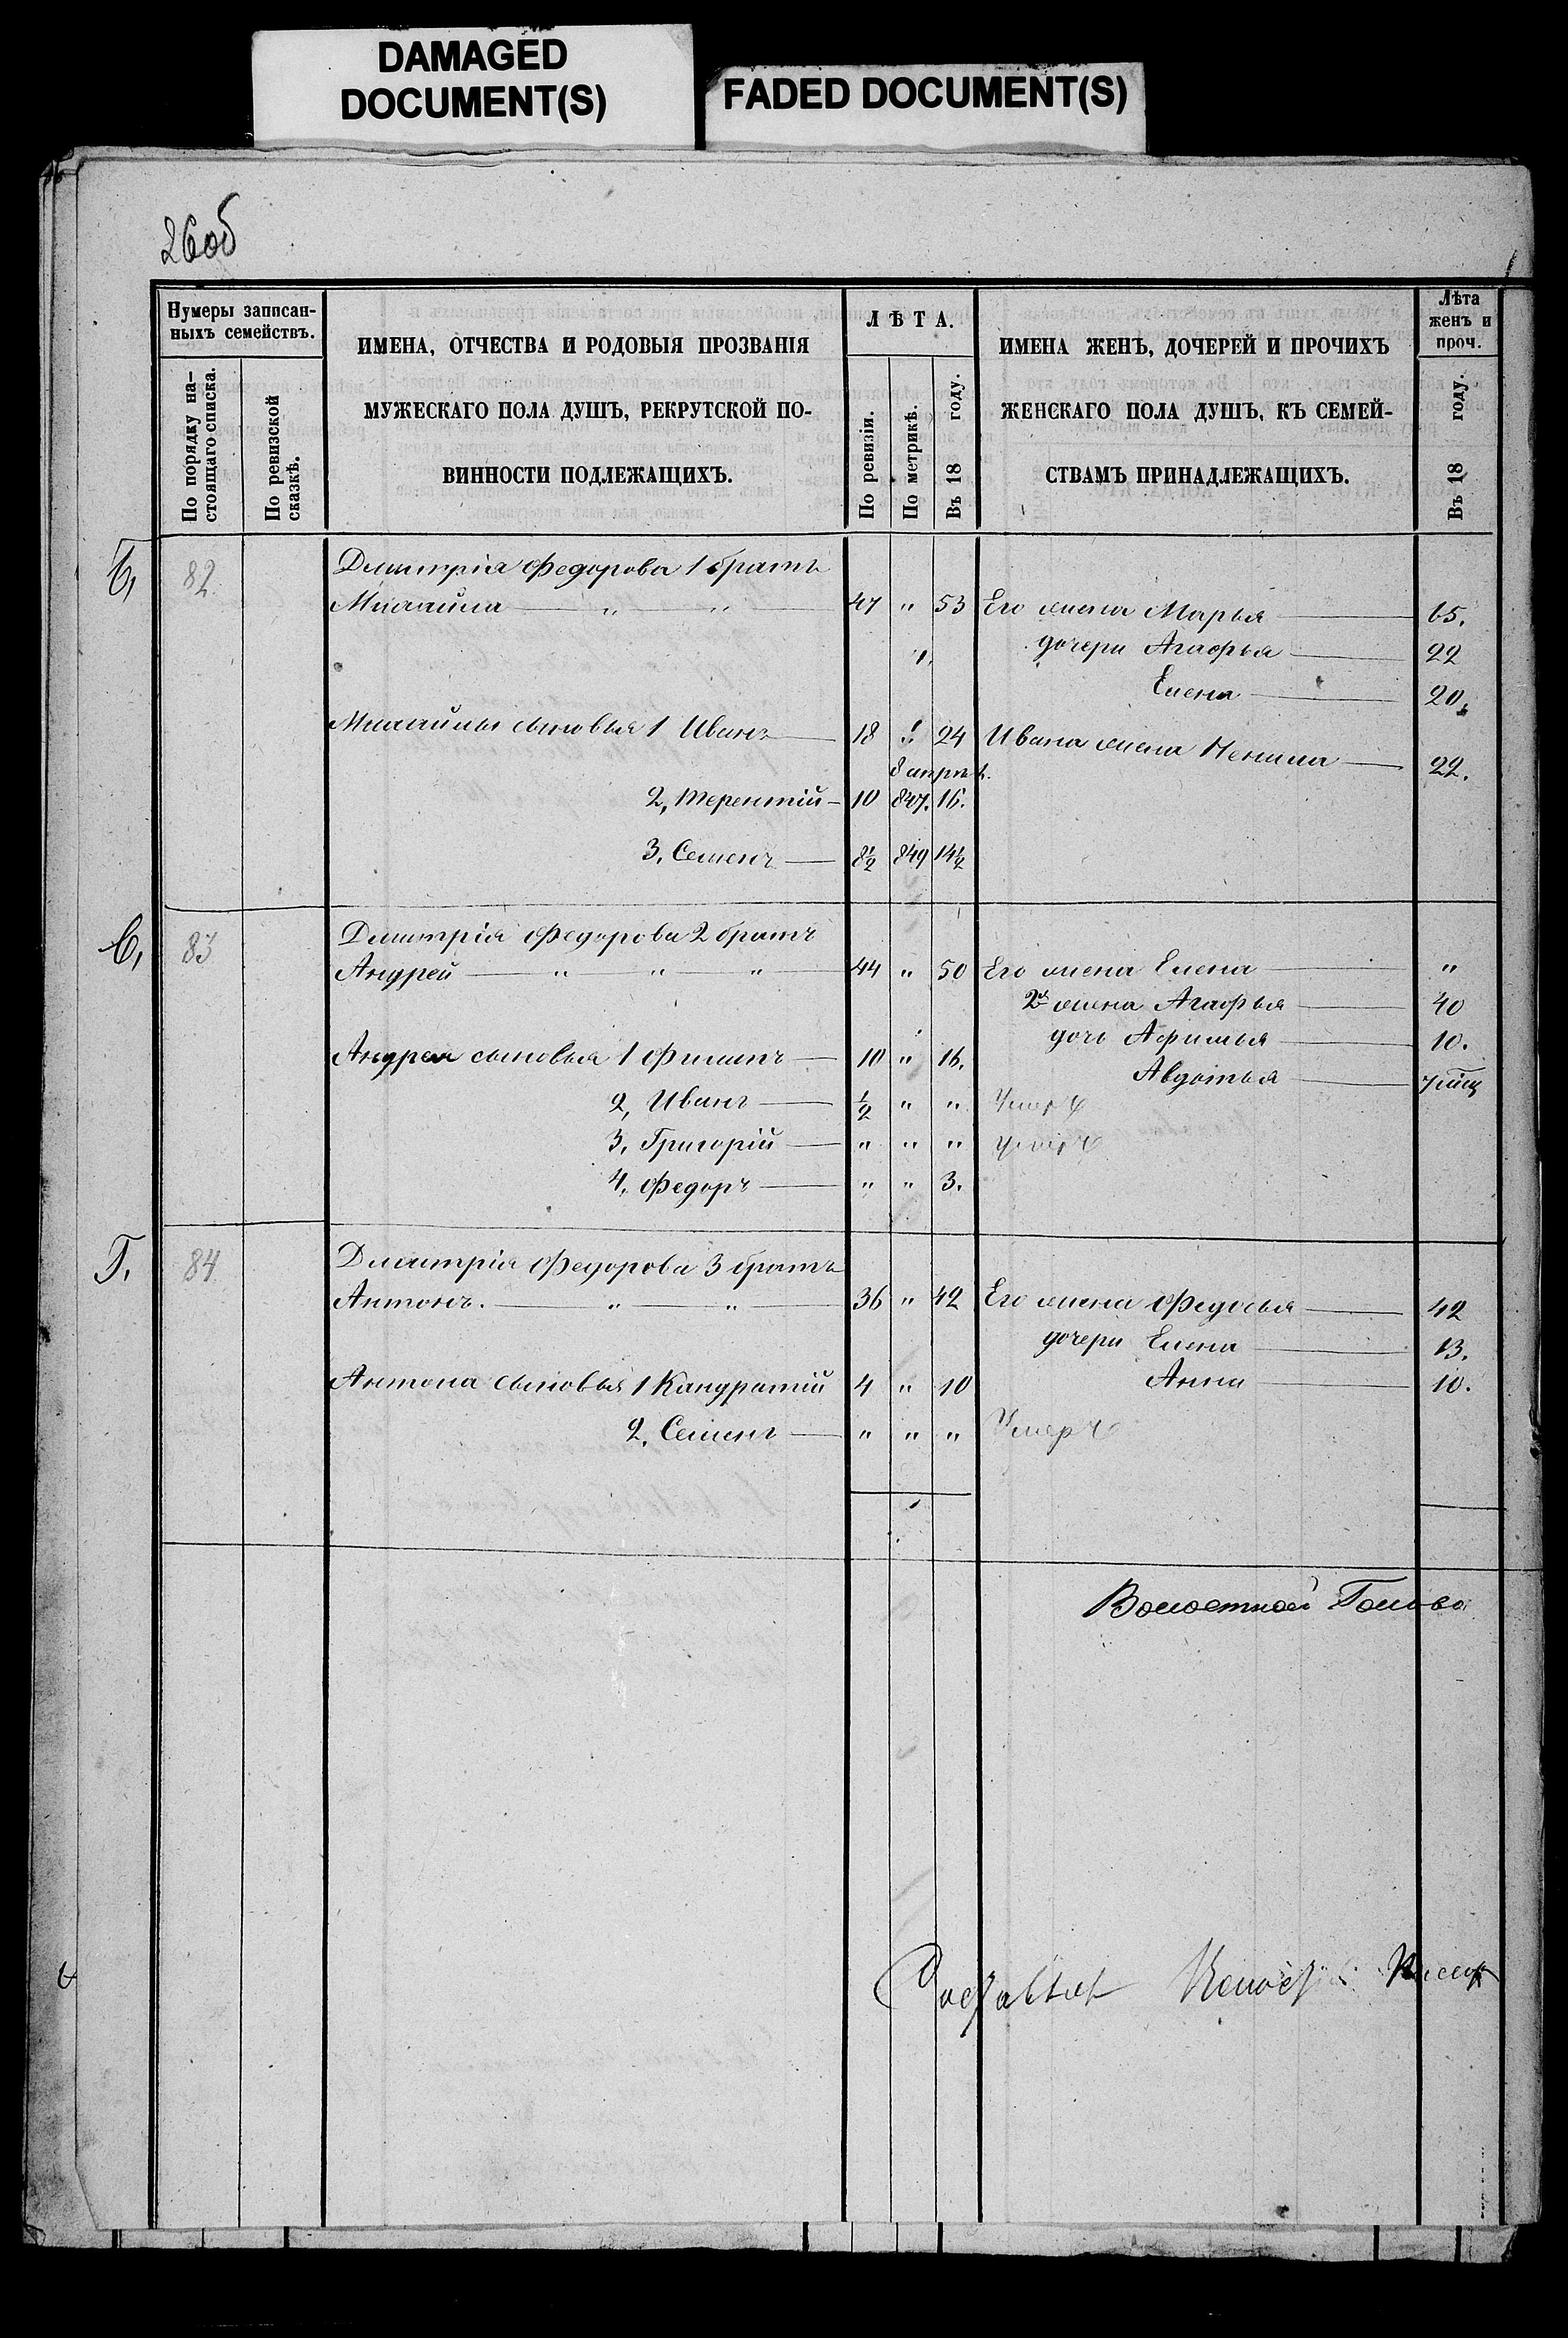 DAMAGED
DOCUMENT(S)
FADED DOCUMENT(S)
26об
Нумеры записан-
ныхъ семействъ.
По порядку на-
стоящаго списка.
По ревизской
сказкѣ.
ИМЕНА, ОТЧЕСТВА И РОДОВЫЯ ПРОЗВАНІЯ
МУЖЕСКАГО ПОЛА ДУШЪ, РЕКРУТСКОЙ ПО-
ВИННОСТИ ПОДЛЕЖАЩИХЪ.
ЛѢТА.
По ревизіи.
По метрикѣ.
Въ 18 году.
ИМЕНА ЖЕНЪ, ДОЧЕРЕЙ И ПРОЧИХЪ
ЖЕНСКАГО ПОЛА ДУШЪ, КЪ СЕМЕЙ-
СТВАМЪ ПРИНАДЛЕЖАЩИХЪ.
Лѣта
женъ и
проч.
Въ 18 году.
82 Димитрія Федорова 1 братъ
Михайла — „ — „ 47 „ 53 Его жена Марья — 65.
дочери Агафья — 22
Елена — 20.
Михайлы сыновья 1 Иванъ — 18 24 Ивана жена — 22.
8 апрѣл.
2, Терентій — 10 847. 16.
3, Семенъ — 8½ 849 14½
83 Димитрія Федорова 2 братъ
Андрей — „ — „ — „ 44 „ 50 Его жена Елена — „
2я жена Агафья — 40
дочь Афимья — 10.
Андрея сыновья 1 Филипъ — 10 „ 16.
Авдотья — 7 мѣц
2, Иванъ — ½ „ „ Умеръ
3, Григорій — „ „ „ умеръ
4, Федоръ — „ „ 3.
Г. 84 Димитрія Федорова 3 братъ
Антонъ. — „ — „ 36 „ 42 Его жена Федосья — 42
дочери Елена — 13.
Антона сыновья 1 Кандратій 4 „ 10 Анна — 10.
2, Семенъ — „ „ „ Умеръ
Волостной Голова